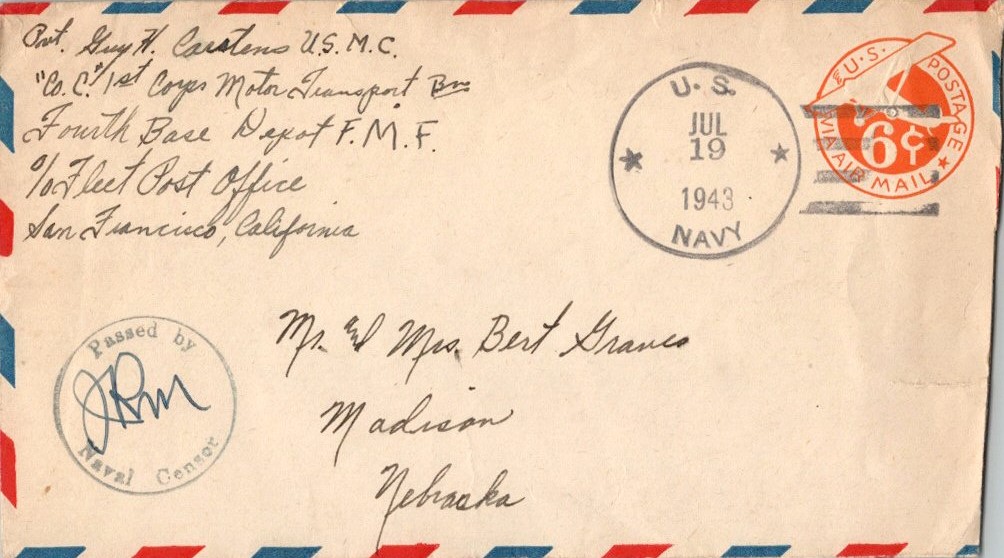 Pvt. Guy H. Carstens U.S.M.C.
"Co. C." 1st Corps Motor Transport Bn
Fourth Base Depot F.M.F.
c/o Fleet Post Office
San Francisco, California
U.S.
JUL
19
1943
NAVY
U.S. POSTAGE
6¢
VIA AIR MAIL
Mr. and Mrs. Bert Graves
Madison
Nebraska
Passed by
Naval Censor